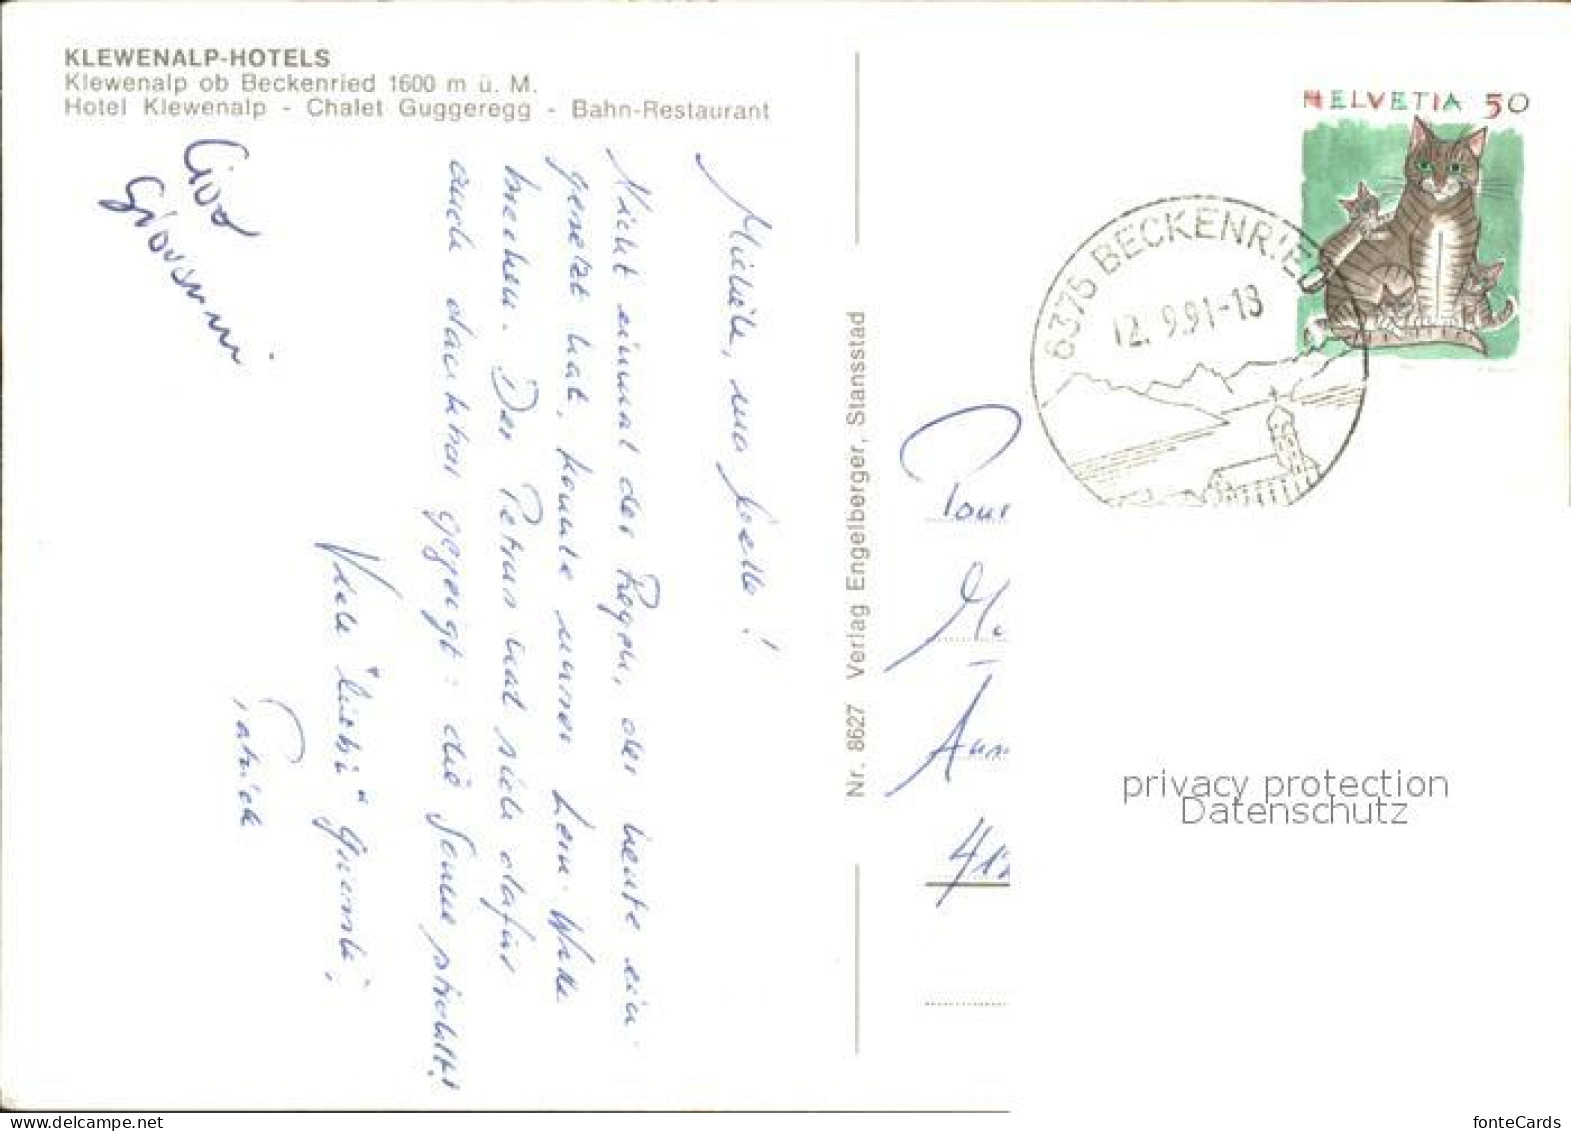 KLEWENALP-HOTELS
Klewenalp ob Beckenried 1600 m ü. M.
Hotel Klewenalp - Chalet Guggeregg - Bahn-Restaurant
Giovanni
Nicht einmal der Regen, der heute ein-
gesetzt hat, konnte unser
brechen. Der Petrus hat sich dafür
auch dankbar gezeigt: die Sonne strahlt!
Viele "liebi" Grüessli,
Patrick
Nr. 8627 Verlag Engelberger, Stansstad
HELVETIA 50
6375 BECKENRIED
12. 9.91-18
Pour
privacy protection
Datenschutz
fonteCards